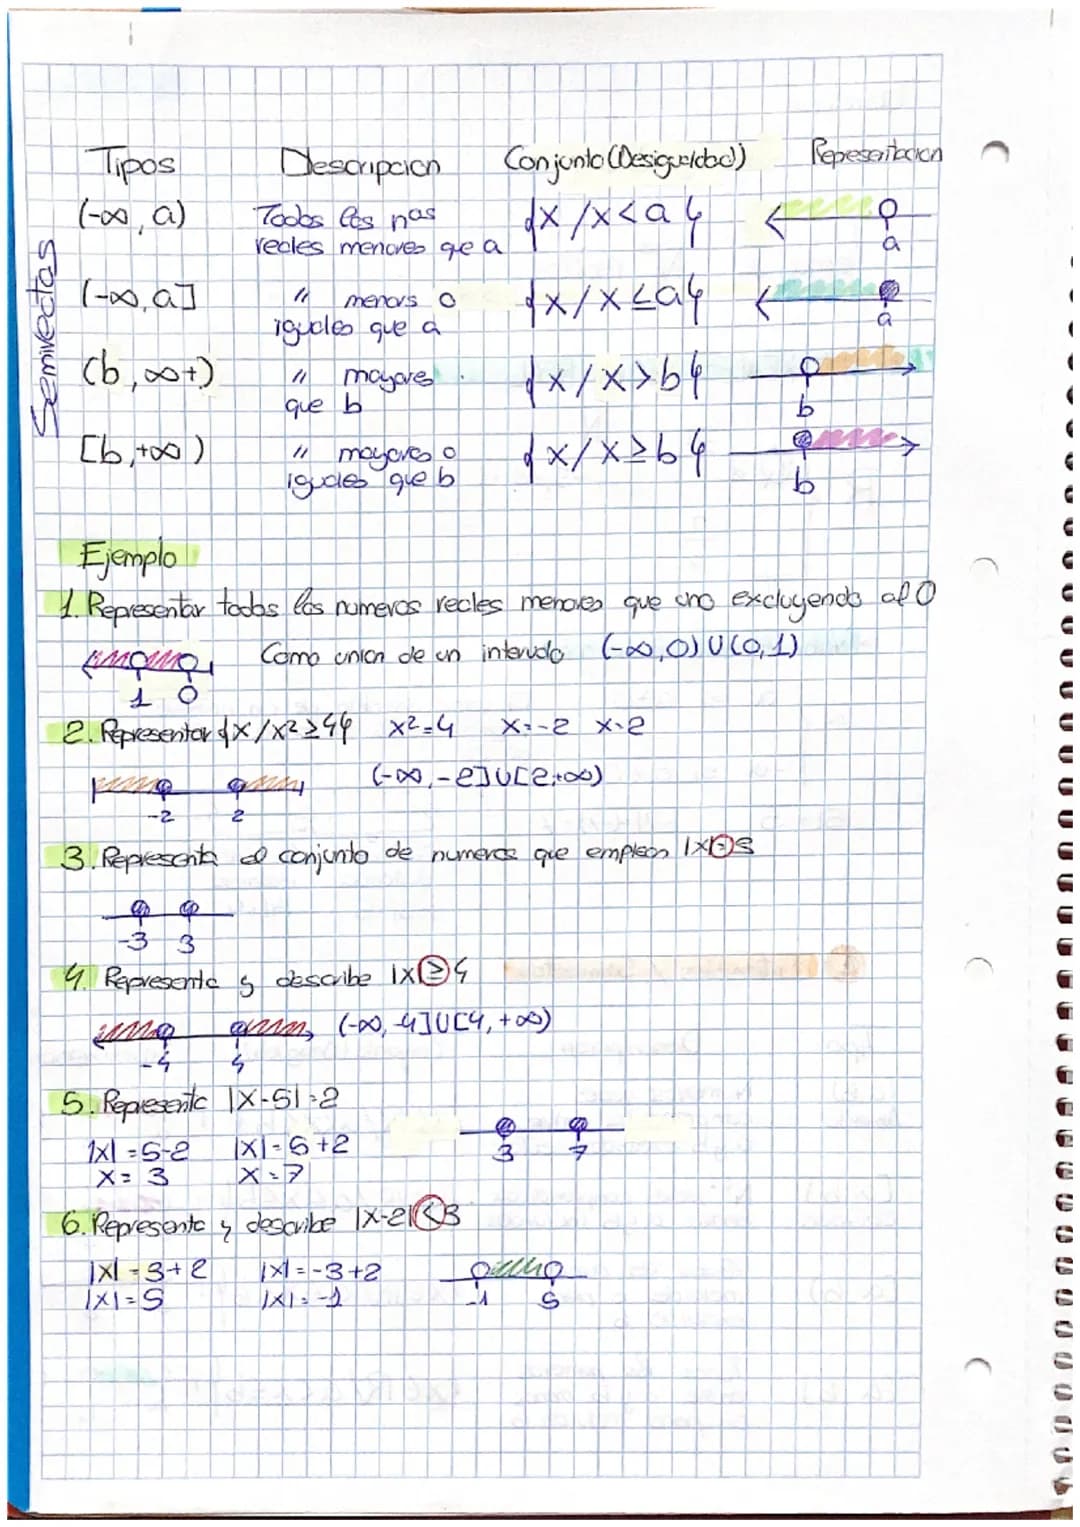 Tipos Descripcion Conjunto (Desigualdad) Represertacion
Semirectas
(-∞, a) Todos los nos {x/x<a} a
reales menores que a
(-∞, a] " menors o {x/x≤a} a
iguales que a
(b, ∞+) " mayores {x/x>b} b
que b
[b, +∞) " mayores o {x/x≥b} b
iguales que b
Ejemplo
1. Representar todos los numeros reales menores que uno excluyendo al 0
Como union de un intervalo (-∞, 0) U (0, 1)
1 0
2. Representar {x/x²≥4} x²=4 x=-2 x=2
(-∞, -2] U [2, +∞)
-2 2
3. Representa el conjunto de numeros que emplean |x|=3
-3 3
4. Representa y describe |x|≥4
(-∞, -4] U [4, +∞)
-4 4
5. Representa |x-5|=2
|x| = 5-2 |x| = 5+2
x = 3 x = 7 3 7
6. Representa y describe |x-2|<3
|x| = 3+2 |x| = -3+2
|x| = 5 |x| = -1 -1 5